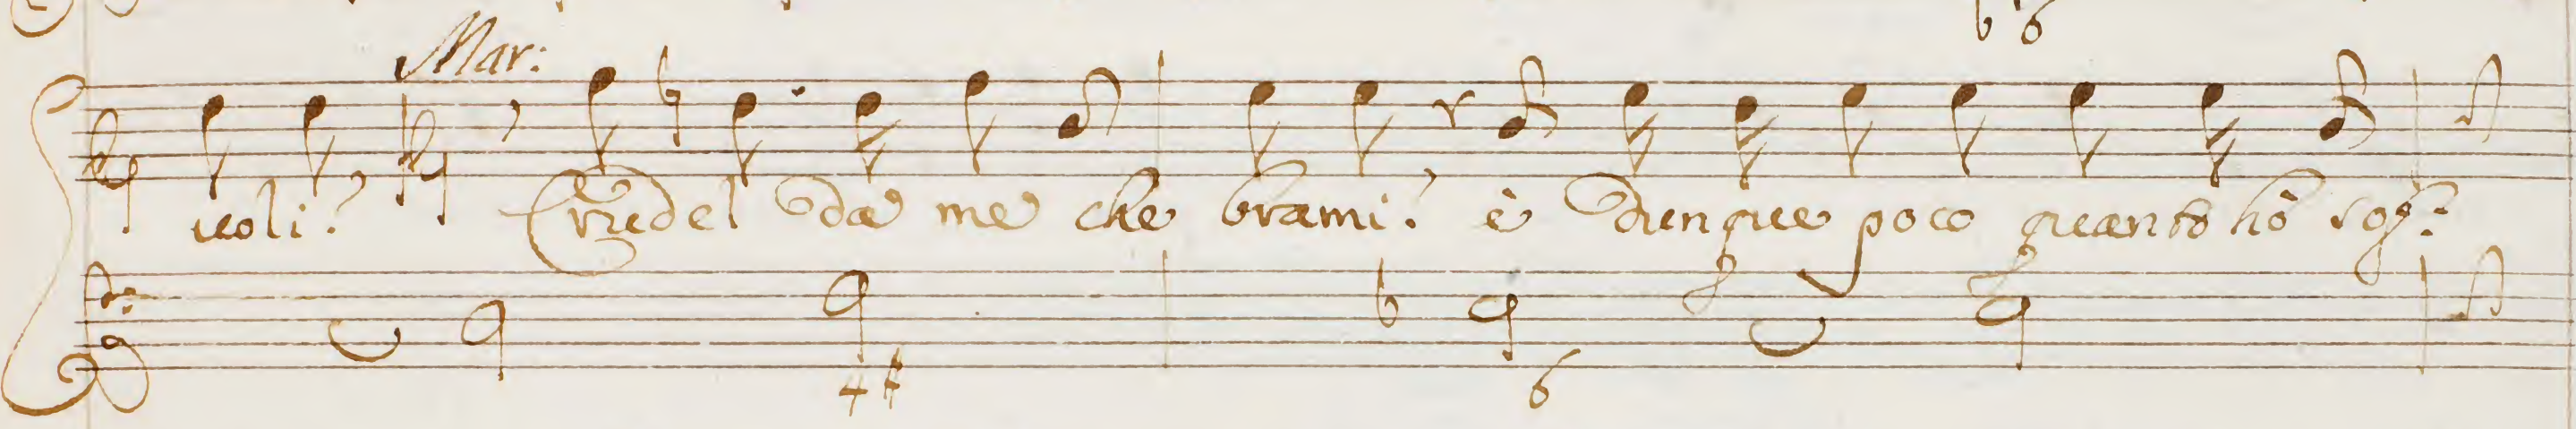 b 6
Mar:
uoli? Crudel da me che brami? è dunque poco quanto hò sof:
4 # 6